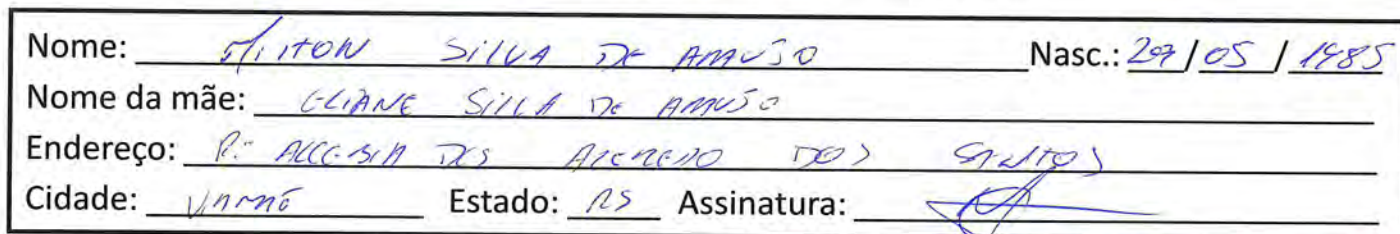 Nome: Milton Silva de Araujo Nasc.: 29/05/1985
Nome da mãe: Eliane Silva de Araujo
Endereço: R: dos Santos
Cidade: Viamão Estado: RS Assinatura: